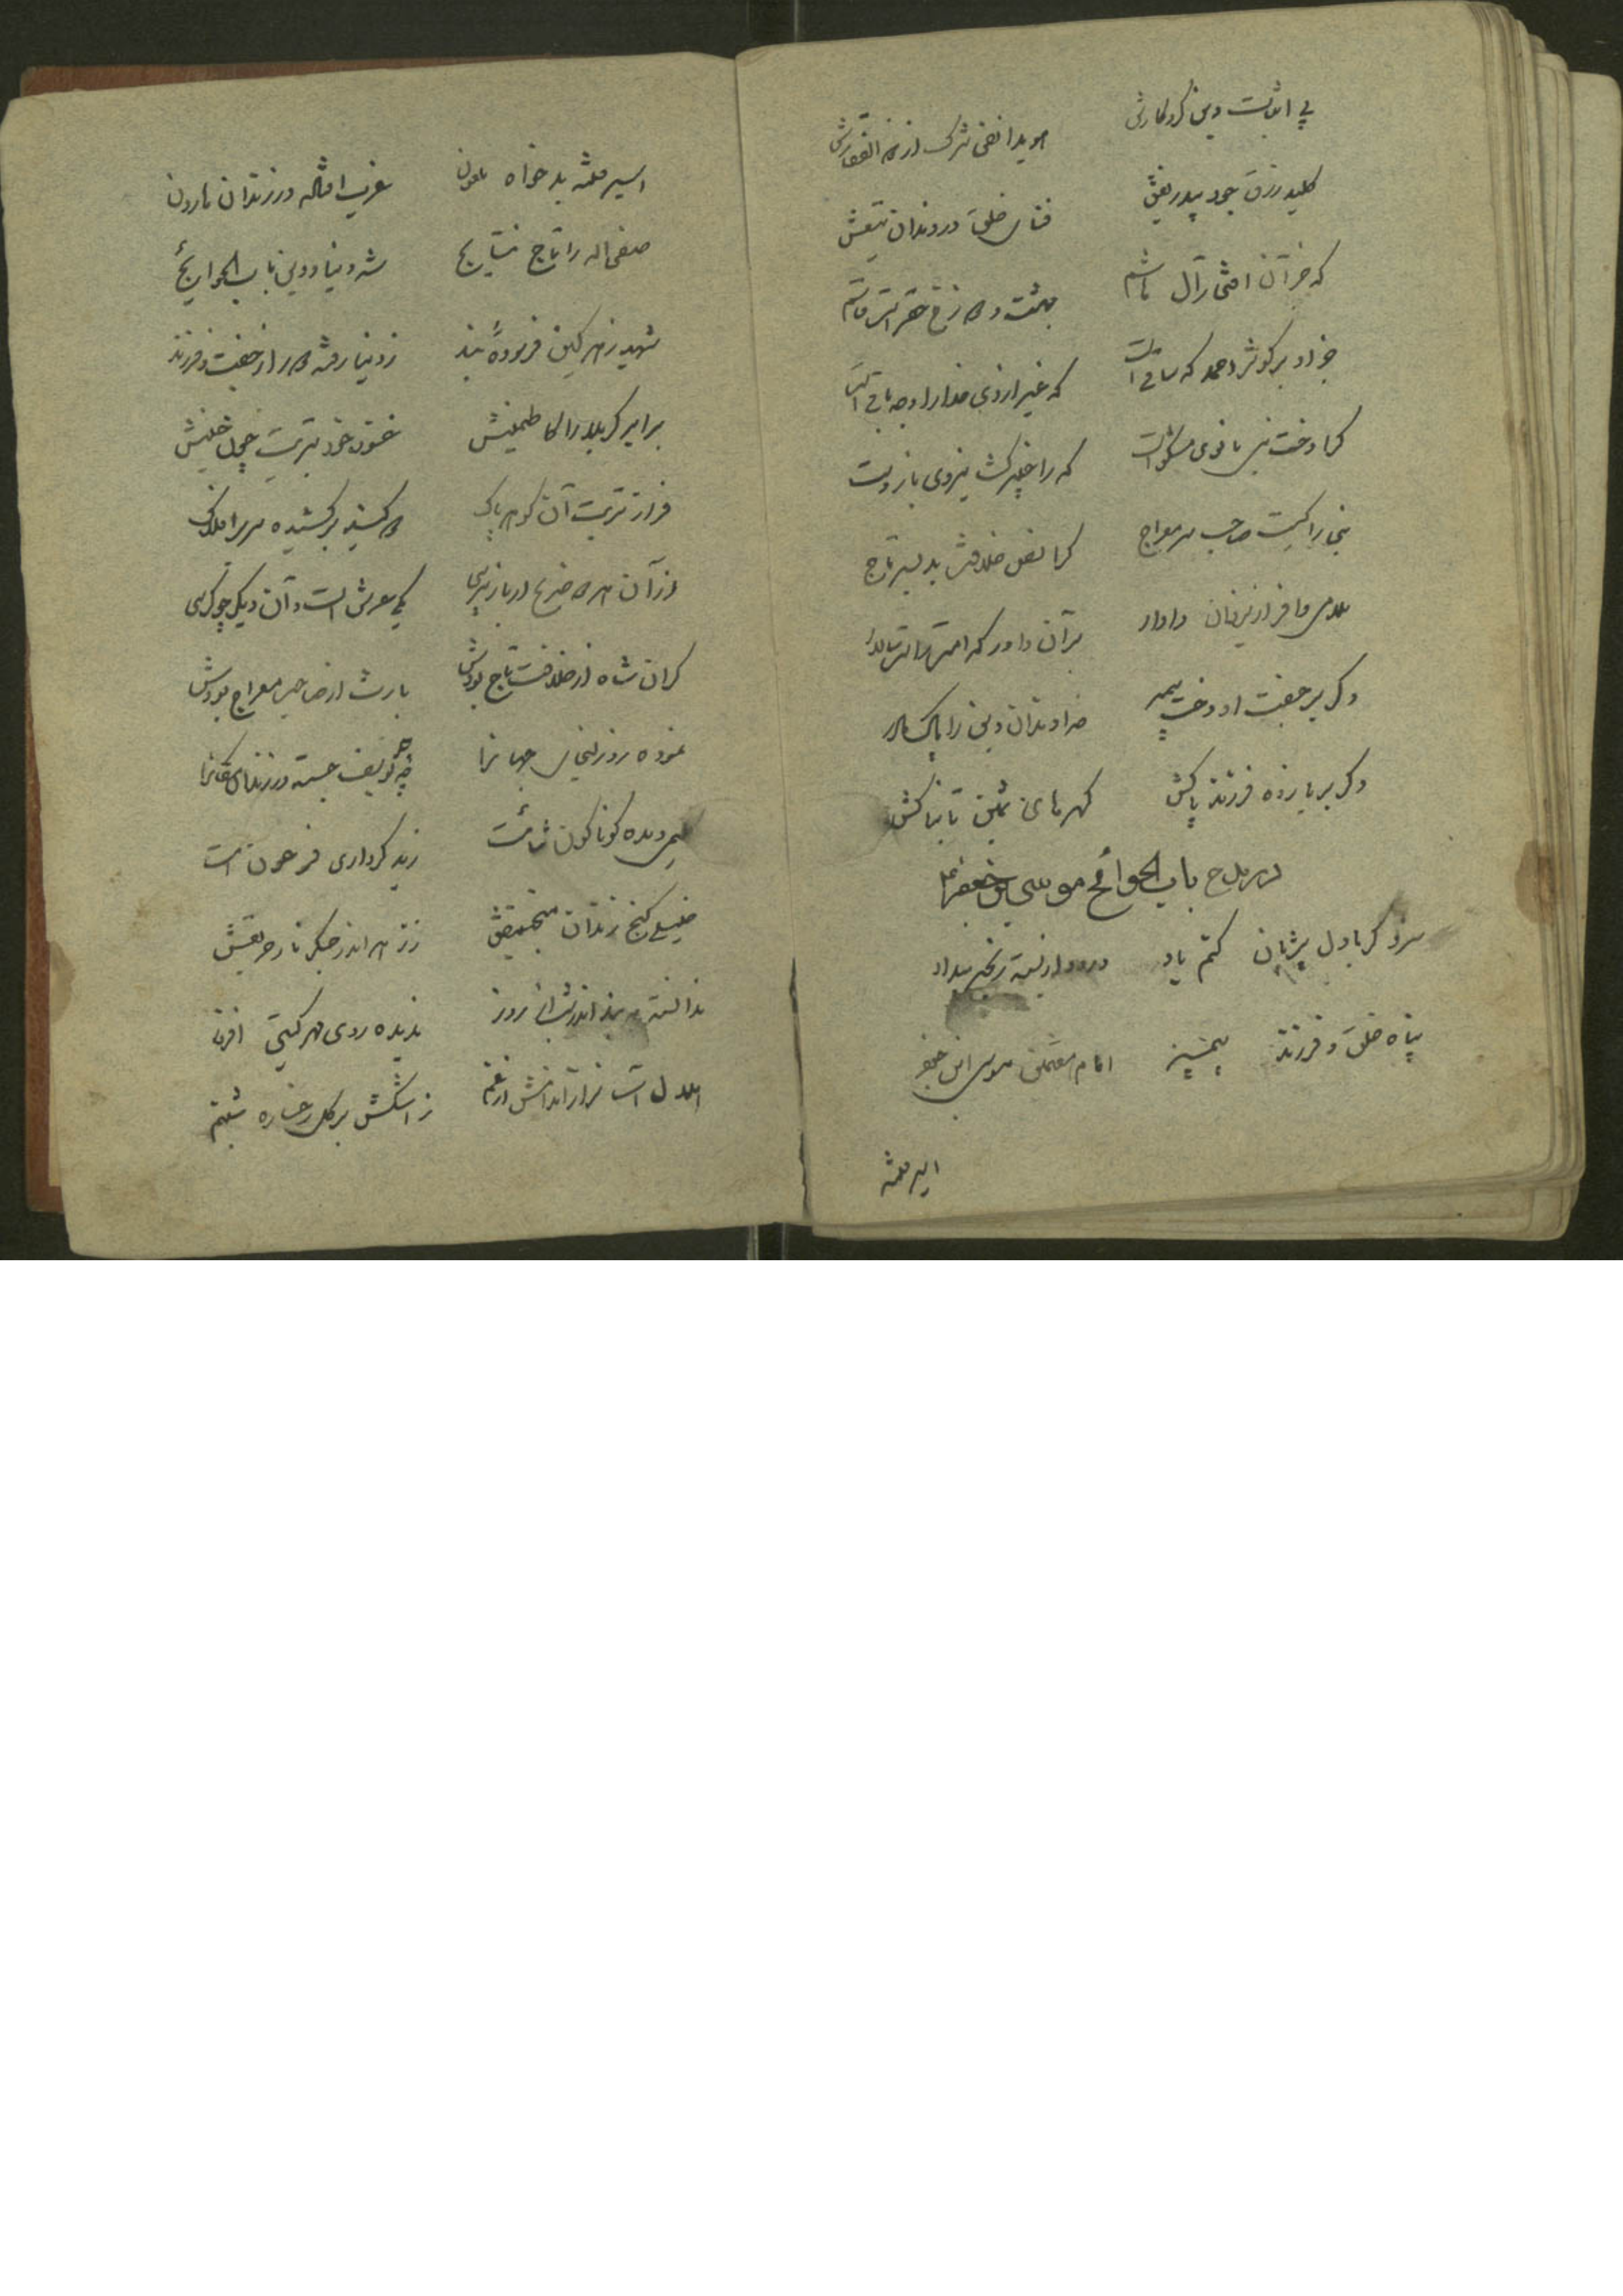 پی اثبات دین کردگارش هویدا نفی شرک از ذو الفقارش
کلید رزق جود بیدریغش فنای خلق در دندان تیغش
که جز آن افتخار آل هاشم بهشت و دوزخ حق راست قاسم
جز او بر کوثر احمد که ساقی است که غیر از وی خدا را وجه باقی است
کرا دخت نبی بانوی مشکوست که را خیبر گشا نیروی بازوست
نبی را کیست صاحب سر معراج کرا نصل خلافت بد بسر تاج
سلامی وافر از یزدان دادار بر آن داور که امت راست سالار
دگر بر جفت او دخت پیمبر خداوندان دین را پاک مادر
دگر بر یازده فرزند پاکش گهرهای ثمین تابناکش
در مدح باب الحوائج موسی بن جعفر
سزد گر با دل پژمان کنم یاد در بسته زنجیر بیداد
پناه خلق و فرزند پیمبر امام هفتمین موسی ابن جعفر
اسیر فتنه
اسیر فتنه بدخواه ملعون غریب افتاده در زندان هارون
صفی اله را تاج نتایج شه دنیا و دین باب الحوایج
شهید زهر کین فرسودهٔ بند ز دنیا رفته دور از جفت و فرزند
برابر کربلا را کاظمینش خود تربت چون حسینش
فراز تربت آن گوهر پاک دو گنبد بر کشیده سر بر افلاک
از آن هر دو ضریح ار باز پرسی یکی عرش است و آن دیگر چو کرسی
گران شاه از خلافت تاج بودش بارث از صاحب معراج بودش
نموده روز لیالی جهانرا چه یوسف جسته در زندان مکانرا
کلیمی دیده گوناگون شماتت ز بد کرداری فرعون امت
خلیلی کنج زندان منجنیقش ز زهر اندر جگر نار حریقش
ندانسته به بند اندر شب از روز ندیده روی مهر گیتی افروز
هلال آسا نزار اندامش از غم ز اشکش بر گل رخساره شبنم